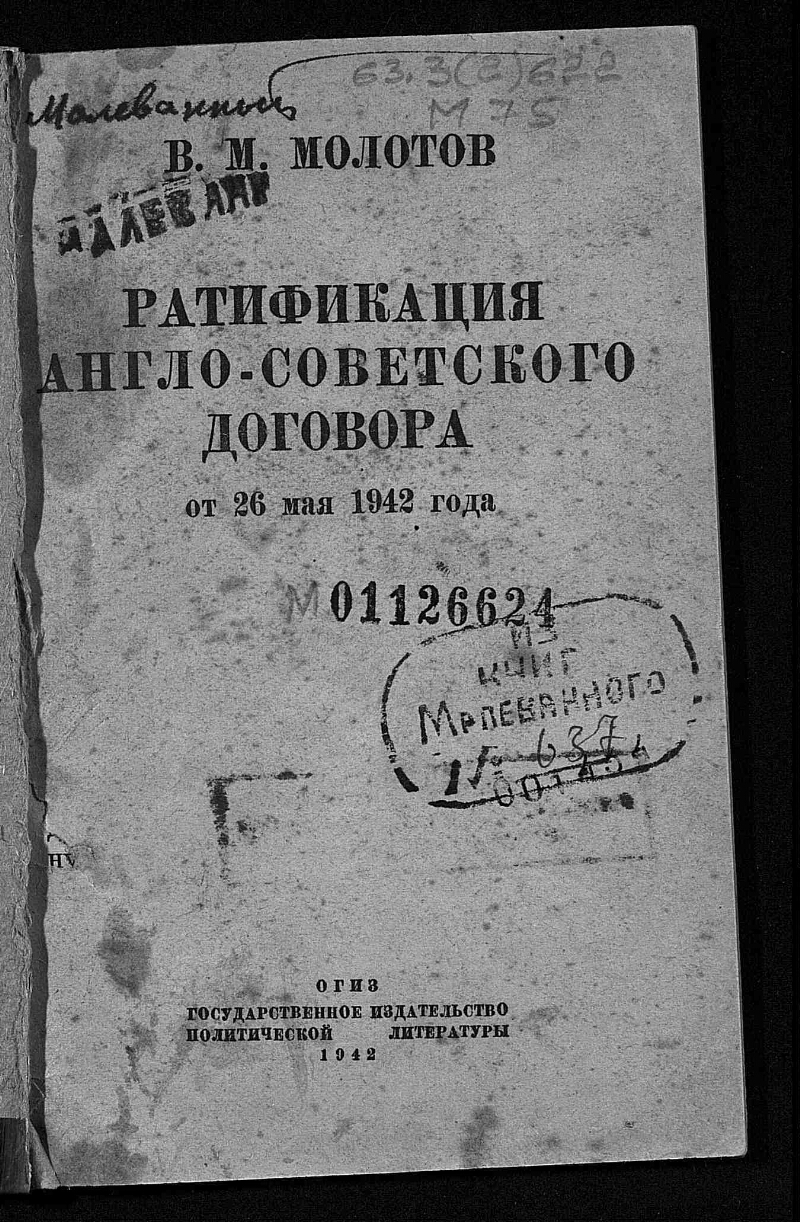 63.3(2)622
М 75
Малеванный
В. М. МОЛОТОВ
РАТИФИКАЦИЯ
АНГЛО-СОВЕТСКОГО
ДОГОВОРА
от 26 мая 1942 года
М 01126624
ИЗ
КНИГ
МАЛЕВАННОГО
№ 637
ОГИЗ
ГОСУДАРСТВЕННОЕ ИЗДАТЕЛЬСТВО
ПОЛИТИЧЕСКОЙ ЛИТЕРАТУРЫ
1942